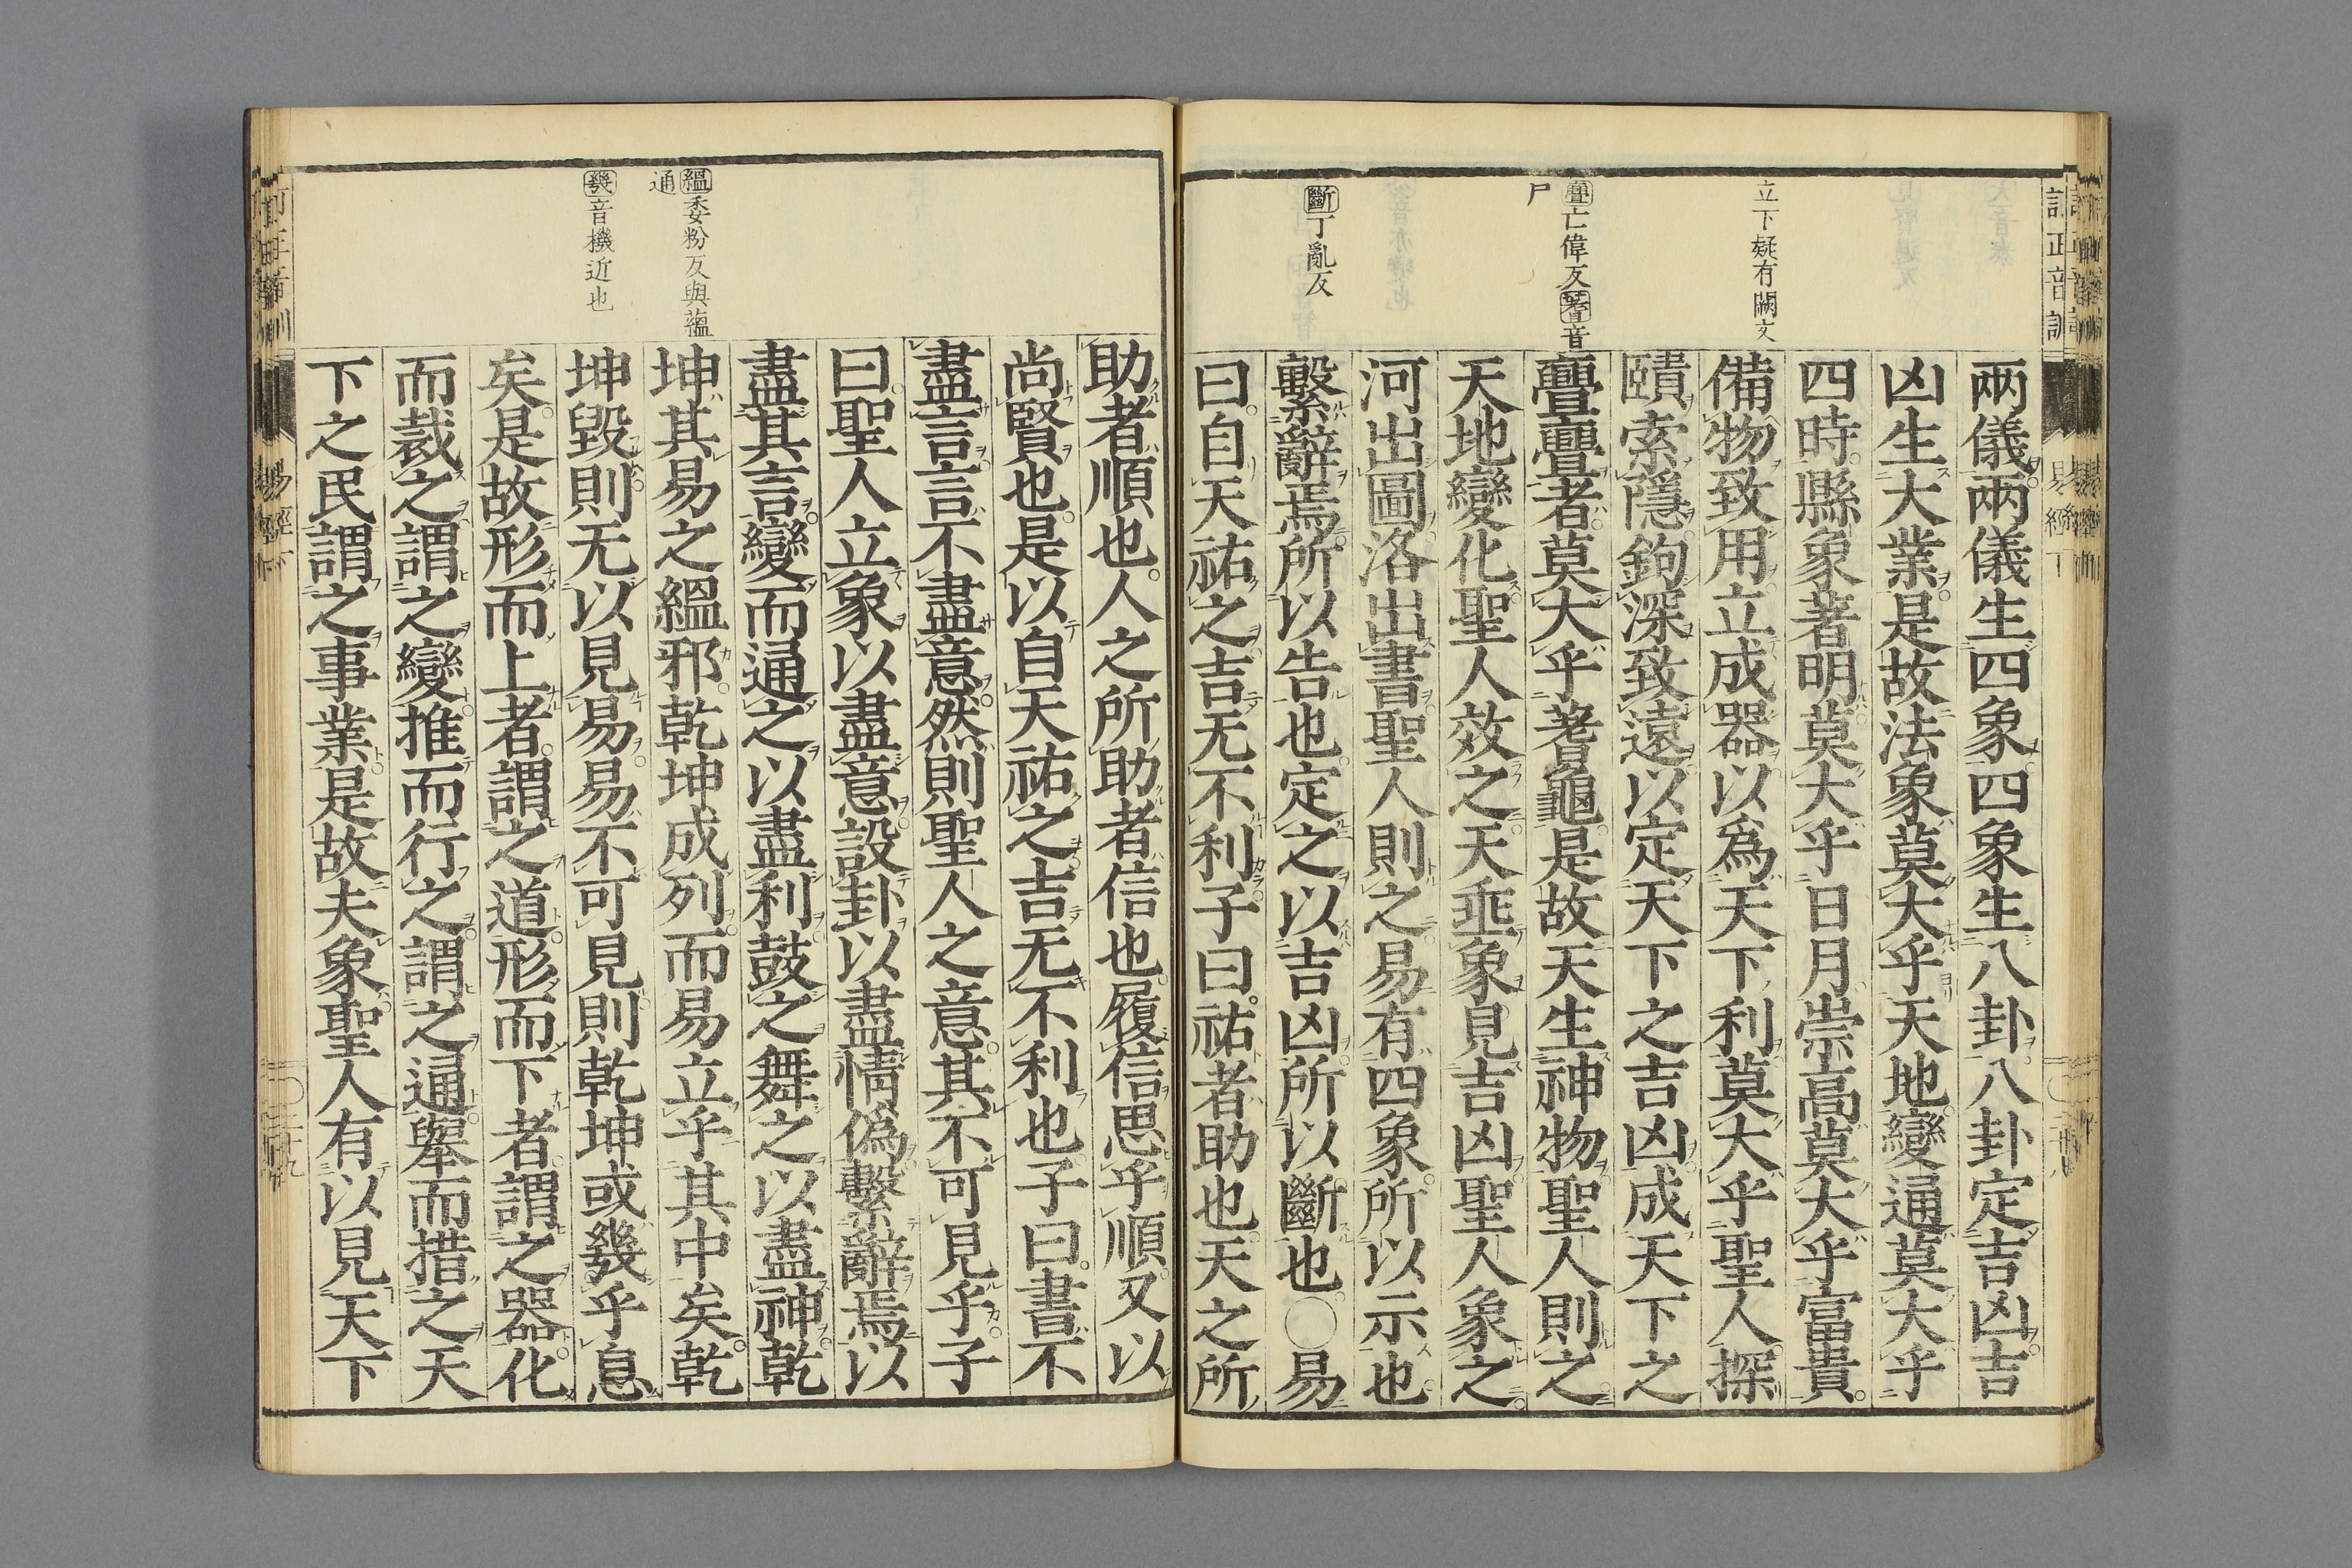 立下疑有闕文
亹亡偉反蓍音
尸
斷丁亂反
兩儀兩儀生四象四象生八卦八卦定吉凶吉
凶生大業是故法象莫大乎天地變通莫大乎
四時縣象著明莫大乎日月崇高莫大乎富貴
備物致用立成器以爲天下利莫大乎聖人探
賾索隱鉤深致遠以定天下之吉凶成天下之
亹亹者莫大乎蓍龜是故天生神物聖人則之
天地變化聖人效之天埀象見吉凶聖人象之
河出圖洛出書聖人則之易有四象所以示也
繫辭焉所以告也定之以吉凶所以斷也○易
曰自天祐之吉无不利子曰祐者助也天之所
縕委粉反與蘊
通
幾音機近也
助者順也人之所助者信也履信思乎順又以
尚賢也是以自天祐之吉无不利也子曰書不
盡言言不盡意然則聖人之意其不可見乎子
曰聖人立象以盡意設卦以盡情僞繫辭焉以
盡其言變而通之以盡利鼓之舞之以盡神乾
坤其易之縕邪乾坤成列而易立乎其中矣乾
坤毀則无以見易易不可見則乾坤或幾乎息
矣是故形而上者謂之道形而下者謂之器化
而裁之謂之變推而行之謂之通舉而措之天
下之民謂之事業是故夫象聖人有以見天下